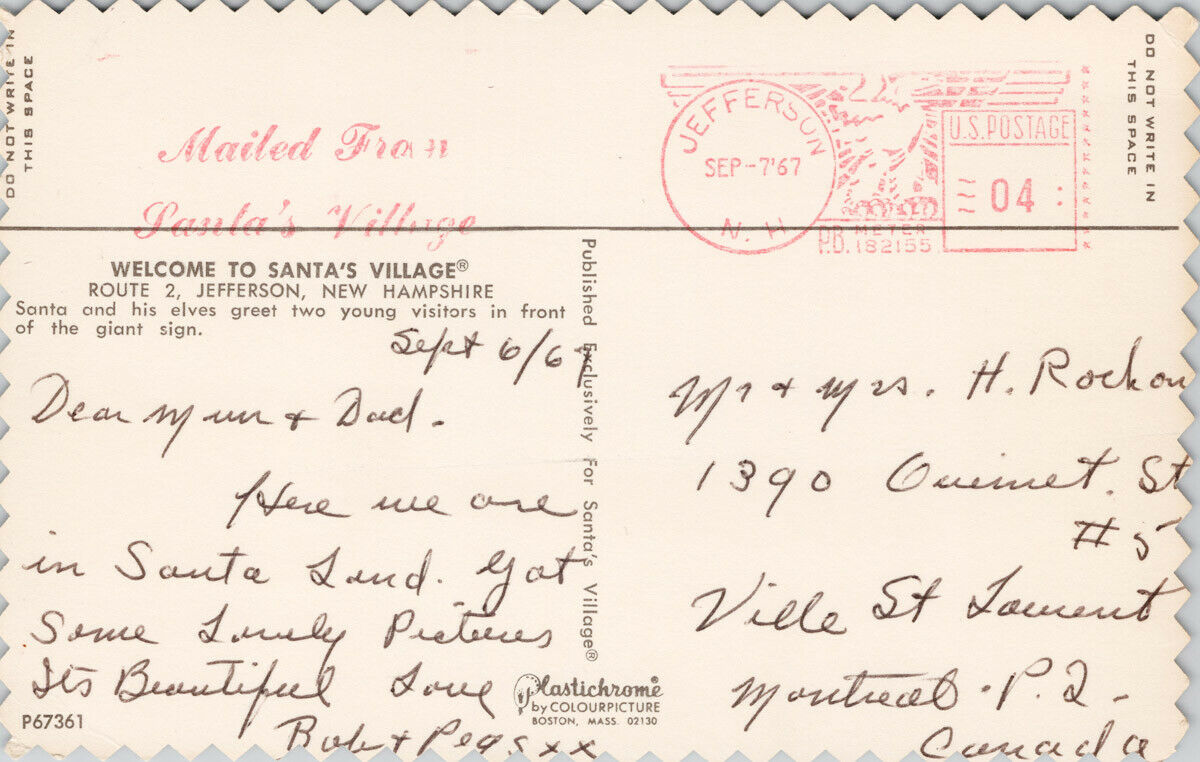 DO NOT WRITE IN
THIS SPACE
Mailed From
Santa's Village
JEFFERSON
SEP-7'67
N.H
U.S. POSTAGE
04
P.B. METER
182155
DO NOT WRITE IN
THIS SPACE
WELCOME TO SANTA'S VILLAGE®
ROUTE 2, JEFFERSON, NEW HAMPSHIRE
Santa and his elves greet two young visitors in front
of the giant sign.
Sept 6/67
Dear Mum + Dad.
Here we are
in Santa Land. Got
Some Lovely Pictures
Its Beautiful Love
Bob + Pegs xx
P67361
Published Exclusively For Santa's Village®
Plastichrome®
by COLOURPICTURE
BOSTON, MASS. 02130
Mr + Mrs. H. Rockon
1390 Ouimet. St
#5
Ville St Laurent
Montreal. P.Q.
Canada